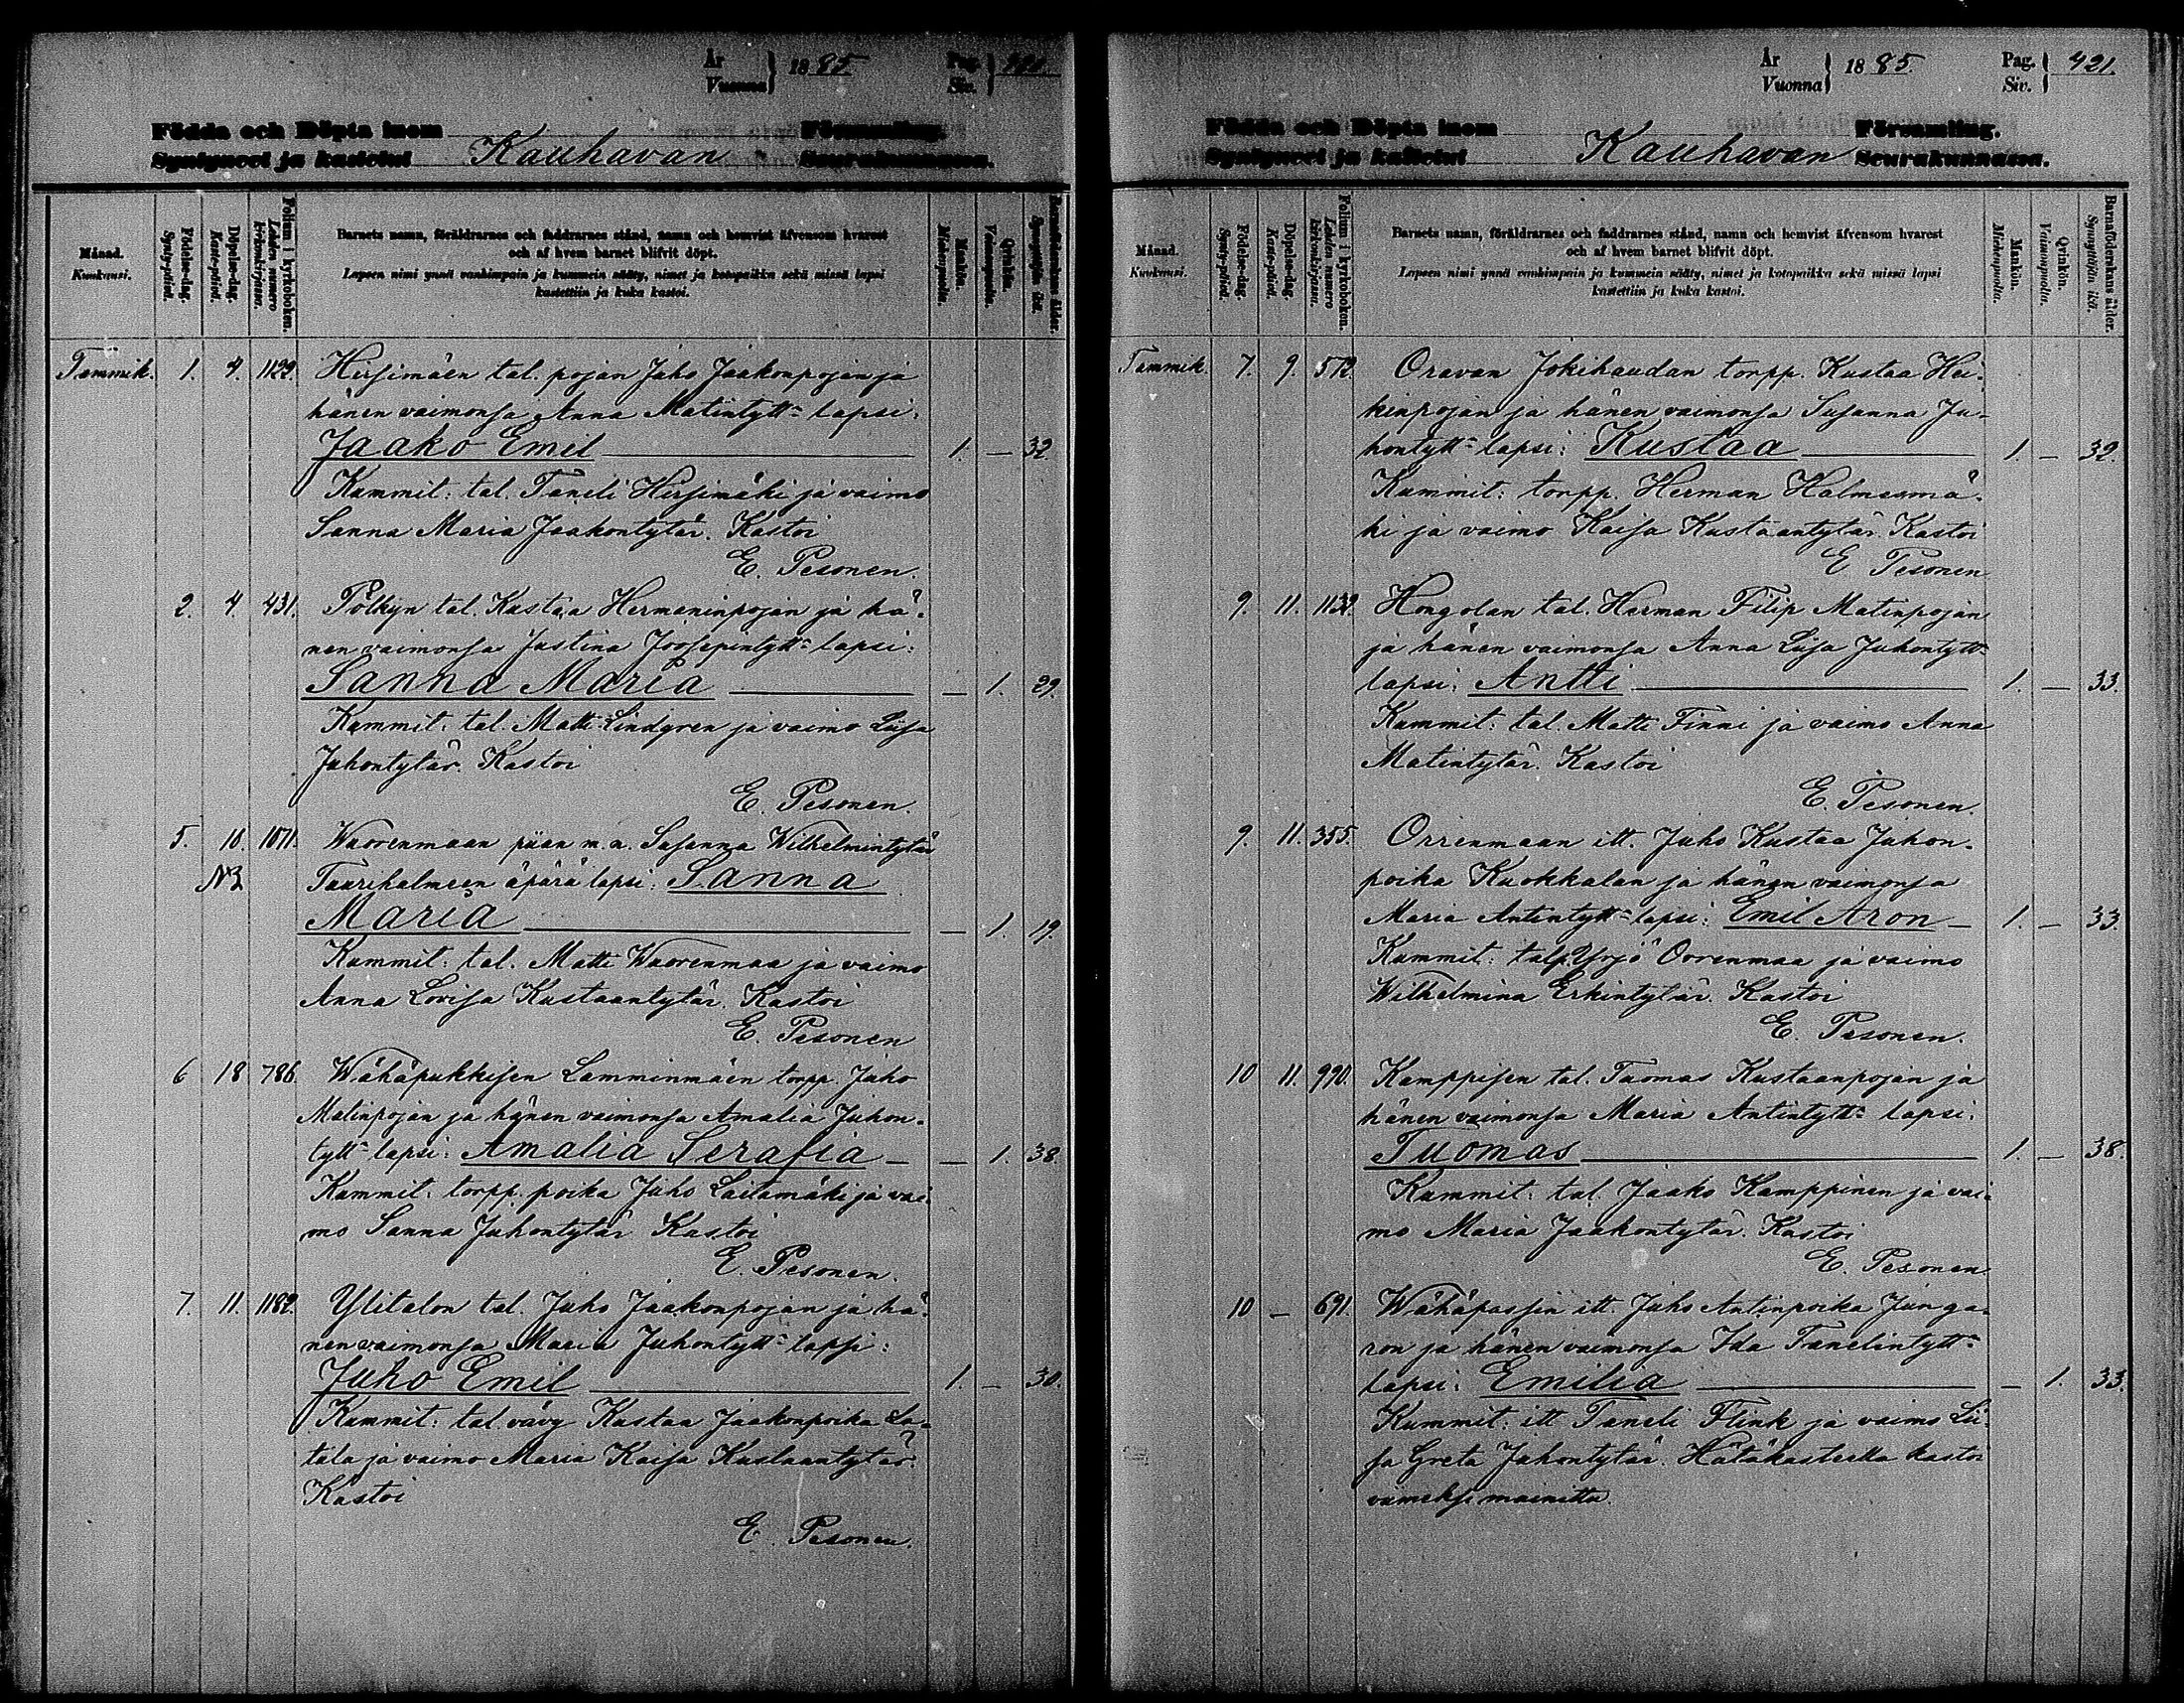 År
Vuonna } 1885. Pag.
Siv. } 420.
Födda och Döpta inom Församling.
Syntyneet ja kastetut Kauhavan Seurakunnassa.
Månad.
Kuukausi.
Födelse-dag.
Synty-päivä.
Döpelse-dag.
Kaste-päivä.
Folium i kyrkoboken.
Lehden numero kirkonkirjassa.
Barnets namn, föräldrarnes och faddrarnes stånd, namn och hemvist äfvensom hvarest
och af hvem barnet blifvit döpt.
Lapsen nimi ynnä vanhimpain ja kummein sääty, nimet ja kotopaikka sekä missä lapsi
kastettiin ja kuka kastoi.
Mankön.
Miehenpuolia.
Qvinkön.
Vaimonpuolia.
Barnaföderskans ålder.
Synnyttäjän ikä.
Tammik. 1. 4. 1122. Hirsimäen tal. pojan Juho Jaakonpojan ja
hänen vaimonsa Anna Matintytt= lapsi:
Jaako Emil 1. — 32
Kummit: tal. Taneli Hirsimäki ja vaimo
Sanna Maria Jaakontytär. Kastoi
E. Pesonen.
2. 4 431. Pölkyn tal. Kustaa Hermaninpojan ja hä-
nen vaimonsa Justina Joosepintytt= lapsi:
Sanna Maria — 1. 29.
Kummit: tal. Matti Lindgren ja vaimo Liisa
Juhontytär. Kastoi
E. Pesonen.
5. 10. 1071. Wuorenmaan piian m.a. Susanna Wilhelmintytär
N3 Taurihalmeen äpärä lapsi: Sanna
Maria — 1. 19.
Kummit: tal. Matti Wuorenmaa ja vaimo
Anna Lovisa Kustaantytär. Kastoi
E. Pesonen
6 18 786. Wähäpukkisen Lamminmäen torpp. Juho
Matinpojan ja hänen vaimonsa Amalia Juhon-
tytt= lapsi: Amalia Serafia — — 1. 38.
Kummit: torpp. poika Juho Laitamäki ja vai-
mo Sanna Juhontytär Kastoi
E. Pesonen.
7. 11. 1182. Ylitalon tal. Juho Jaakonpojan ja hä-
nen vaimonsa Maria Juhontytt= lapsi:
Juho Emil 1. — 30.
Kummit: tal. vävy Kustaa Jaakonpoika La-
tala ja vaimo Maria Kaisa Kustaantytär.
Kastoi
E. Pesonen.
År
Vuonna } 1885. Pag.
Siv. } 421.
Födda och Döpta inom Församling.
Syntyneet ja kastetut Kauhavan Seurakunnassa.
Månad.
Kuukausi.
Födelse-dag.
Synty-päivä.
Döpelse-dag.
Kaste-päivä.
Folium i kyrkoboken.
Lehden numero kirkonkirjassa.
Barnets namn, föräldrarnes och faddrarnes stånd, namn och hemvist äfvensom hvarest
och af hvem barnet blifvit döpt.
Lapsen nimi ynnä vanhimpain ja kummein sääty, nimet ja kotopaikka sekä missä lapsi
kastettiin ja kuka kastoi.
Mankön.
Miehenpuolia.
Qvinkön.
Vaimonpuolia.
Barnaföderskans ålder.
Synnyttäjän ikä.
Tammik. 7. 9. 572. Oravan Jokihaudan torpp. Kustaa Hei-
kinpojan ja hänen vaimonsa Susanna Ju-
hontytt= lapsi: Kustaa 1. — 32.
Kummit: torpp. Herman Halmesmä-
ki ja vaimo Kaisa Kustaantytär. Kastoi
E Pesonen
9. 11. 1132. Hongolan tal. Herman Filip Matinpojan
ja hänen vaimonsa Anna Liisa Juhontytt=
lapsi: Antti 1. — 33.
Kummit: tal. Matti Finni ja vaimo Anna
Matintytär. Kastoi
E. Pesonen.
9. 11. 355. Orrenmaan itt. Juho Kustaa Juhon-
poika Kuokkalan ja hänen vaimonsa
Maria Antintytt= lapsi: Emil Aron — 1. — 33.
Kummit: talp. Yrjö Orrenmaa ja vaimo
Wilhelmina Erkintytär. Kastoi
E. Pesonen.
10 11. 990. Kamppisen tal. Tuomas Kustaanpojan ja
hänen vaimonsa Maria Antintytt= lapsi:
Tuomas 1. — 38.
Kummit: tal. Jaako Kamppinen ja vai-
mo Maria Jaakontytär. Kastoi
E. Pesonen.
10 — 691. Wähäpassin itt. Juho Antinpoika Junga-
ron ja hänen vaimonsa Ida Tanelintytt=
lapsi: Emilia — 1. 33.
Kummit: itt Taneli Flink ja vaimo Lii-
sa Greta Juhontytär. Hätäkasteella kastoi
viimeksi mainittu.